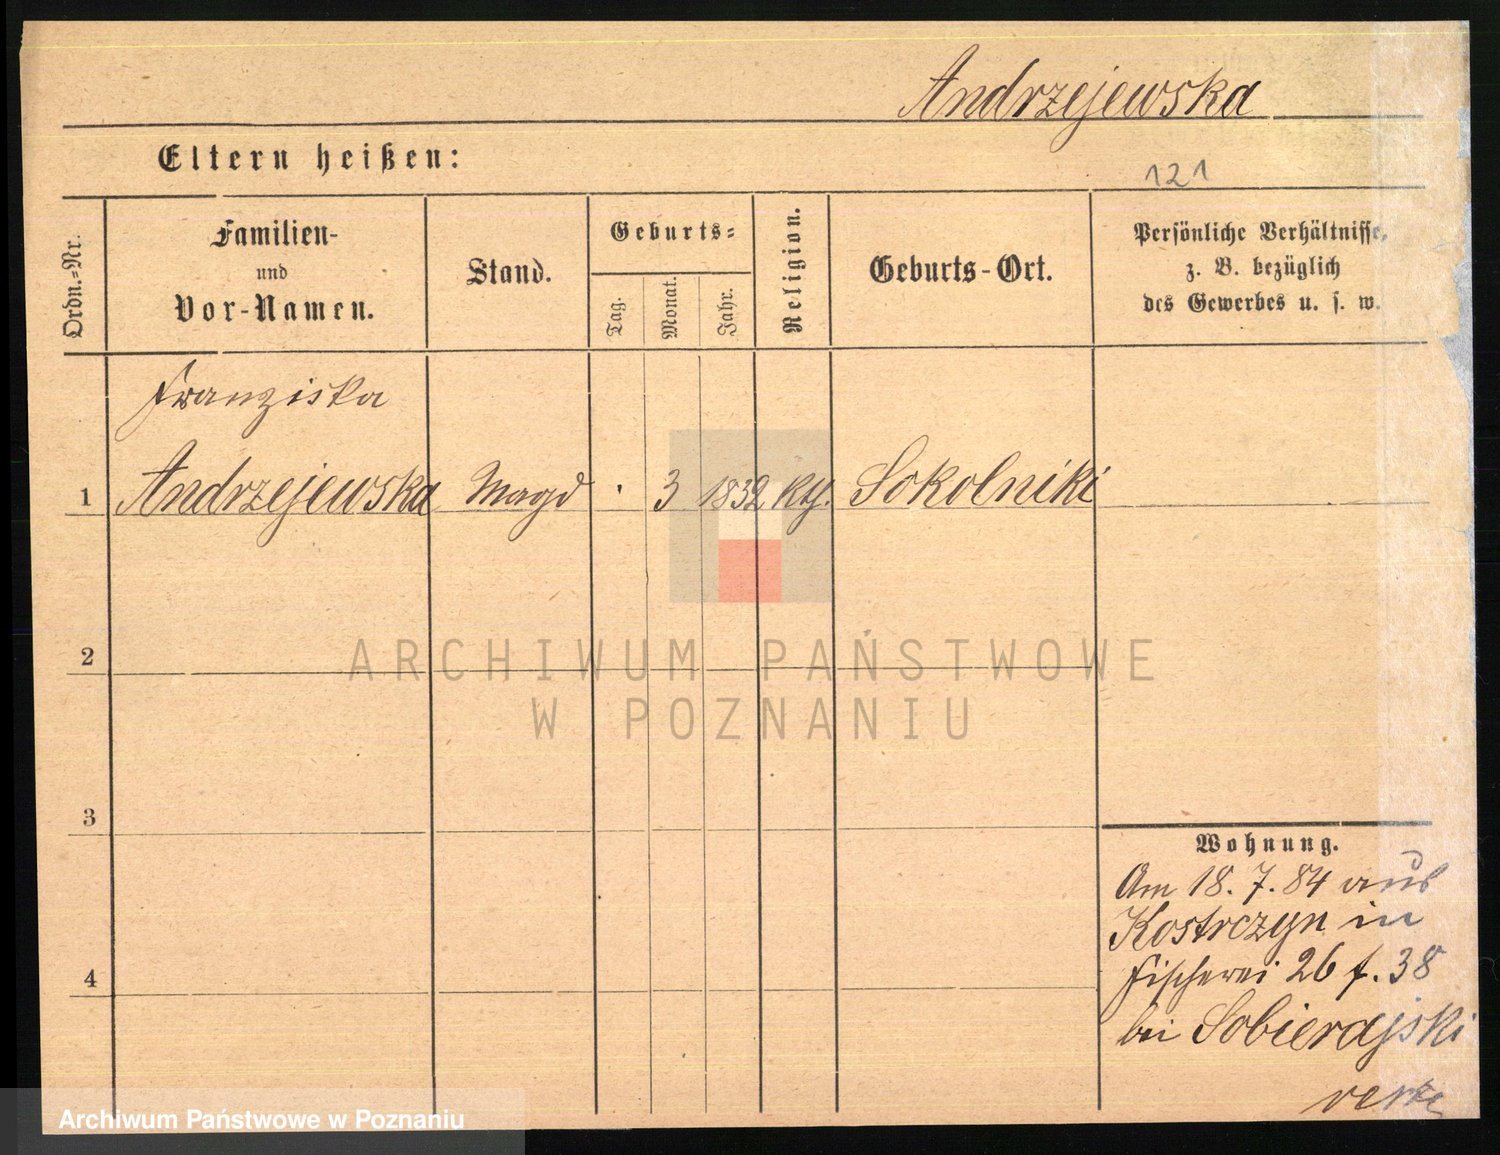 Andrzejewska
Eltern heißen:
121
Ordn.=Nr.
Familien-
und
Vor-Namen.
Stand.
Geburts=
Tag.
Monat.
Jahr.
Religion.
Geburts-Ort.
Persönliche Verhältnisse,
z. B. bezüglich
des Gewerbes u. s. w.
Franziska
1 Andrzejewska Magd 3 1832 Sokolniki
2
ARCHIWUM PAŃSTWOWE
W POZNANIU
3
Wohnung.
Am 18. 7. 84 aus
Kostrczyn in
4
Fischerei 26 f. 38
bei Sobierajski
Archiwum Państwowe w Poznaniu